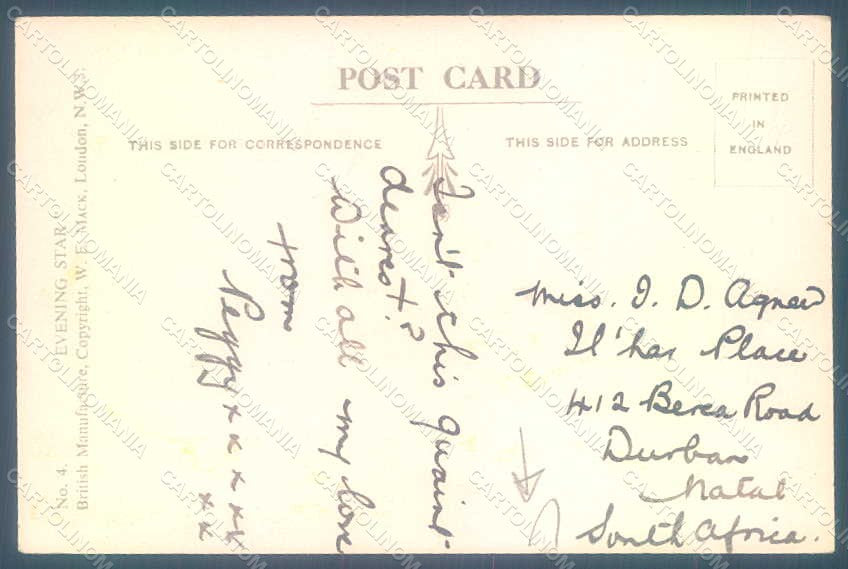 POST CARD
THIS SIDE FOR CORRESPONDENCE
THIS SIDE FOR ADDRESS
PRINTED
IN
ENGLAND
No. 4. "EVENING STAR"
British Manufacture, Copyright, W. E. MACK, London, N.W.3.
Isn't this quaint
dearest?
With all my love
from
Peggy x x x x x
x x
Miss. I. D. Agnew
"Il'har Place
412 Berea Road
Durban
Natal
South Africa.
CARTOLINOMANIA